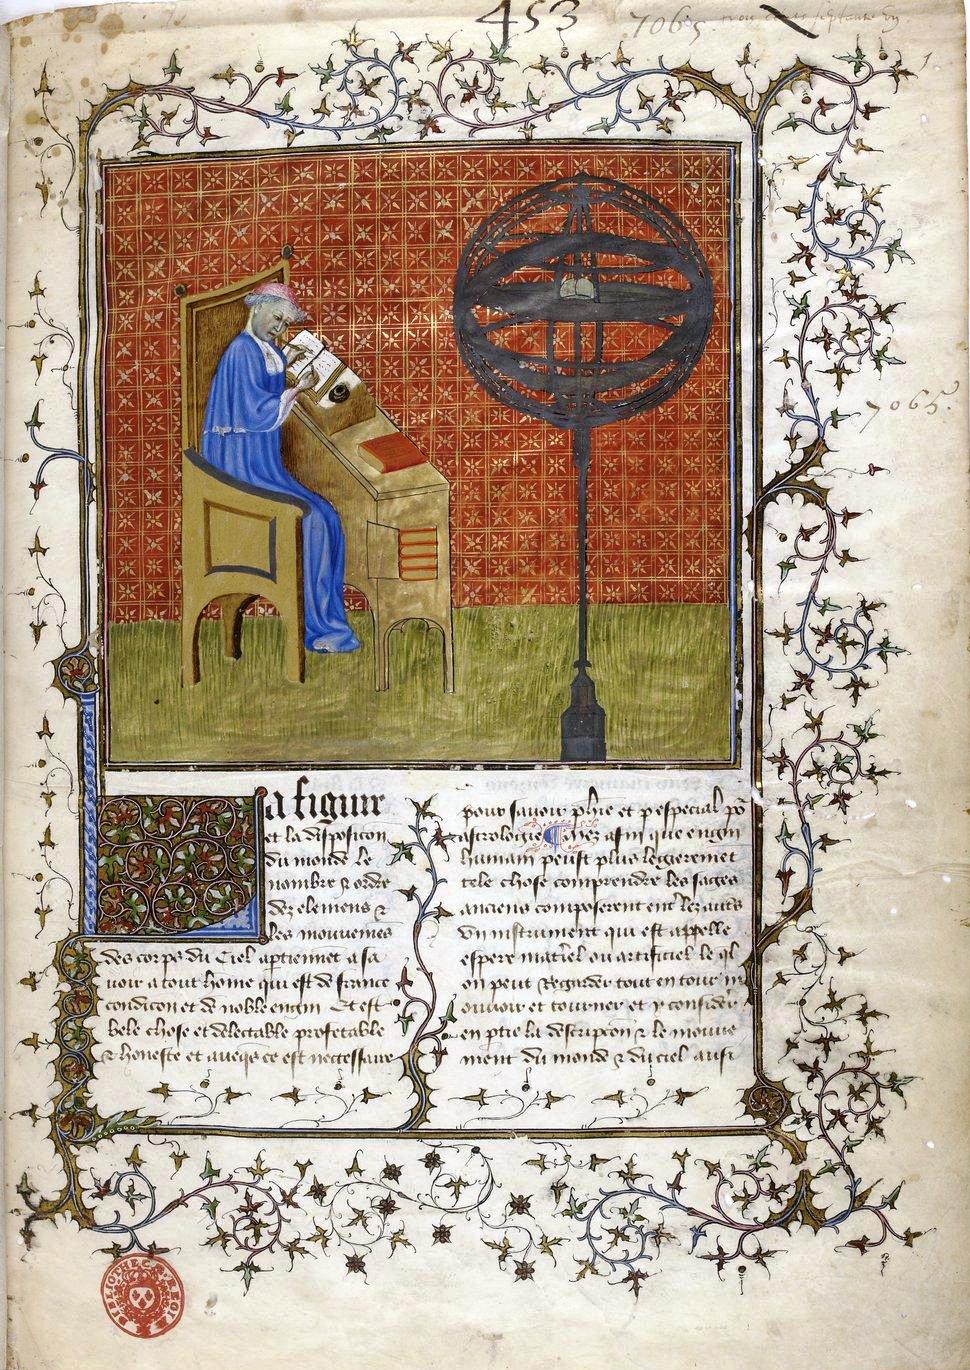 453
7065
1.
7065.
la figure
et la disposicon
du monde le
nombre & ordre
dez elemens &
les mouvemens
des corps du Ciel aptiennet a sa
voir a tout home qui est de france
condicon et de noble engin Et est
bele chose et delectable profetable
& honeste et aueqs ce est necessaire
pour savoir phie et p especial po
astrologie ¶ Mez afin que engin
humain peust plus legierement
tele chose comprendre les sages
anciens composerent ent lez auts
Un instrument qui est appelle
espere materiel ou artificiel le ql
on peut Regarder tout en tour
mouvoir et tourner et y considerer
en ptie la descripcon & le mouve
ment du monde & du ciel ausi
BIBLIOTHECÆ REGIÆ